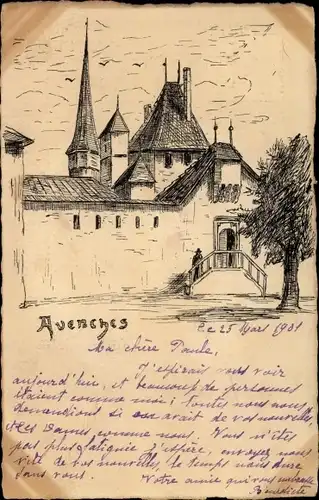 Avenches
Le 25 Mars 1901
Ma chère Paule,
J'espérais vous voir
aujourd'hui, et beaucoup de personnes
étaient comme moi; toutes nous nous
demandions si on avait de vos nouvelles,
et les Dames comme nous. Vous n'êtes
pas plus fatiguée j'espère, envoyez nous
vite de vos nouvelles, le temps nous dure
sans vous.
Votre amie qui vous embrasse
Bénédicte